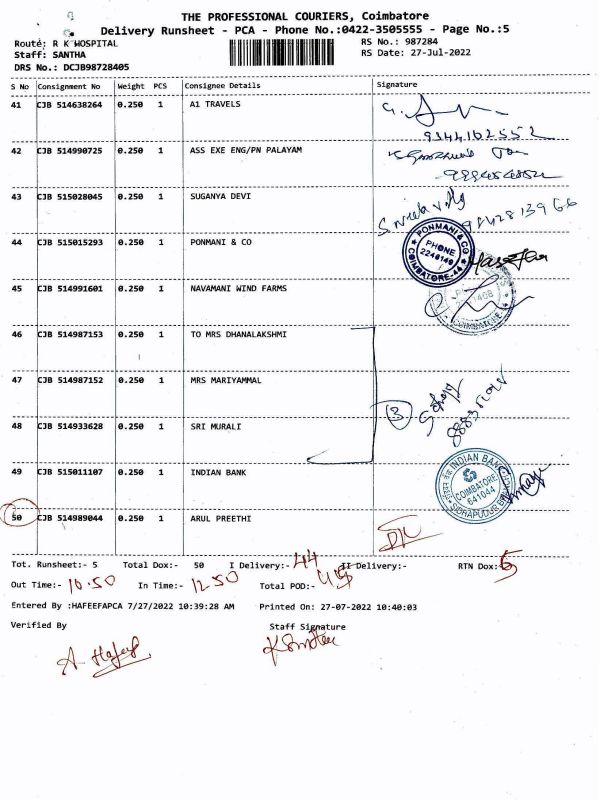 THE PROFESSIONAL COURIERS, Coimbatore
Delivery Runsheet - PCA - Phone No.:0422-3505555 - Page No.:5
Route: R K HOSPITAL
RS No.: 987284
Staff: SANTHA
RS Date: 27-Jul-2022
DRS No.: DCJB98728405
S No Consignment No Weight PCS Consignee Details Signature
41 CJB 514638264 0.250 1 A1 TRAVELS
42 CJB 514990725 0.250 1 ASS EXE ENG/PN PALAYAM
43 CJB 515028045 0.250 1 SUGANYA DEVI
44 CJB 515015293 0.250 1 PONMANI & CO
PONMANI & CO
PHONE
COIMBATORE-44
45 CJB 514991601 0.250 1 NAVAMANI WIND FARMS
COIMBATORE
46 CJB 514987153 0.250 1 TO MRS DHANALAKSHMI
47 CJB 514987152 0.250 1 MRS MARIYAMMAL
3
48 CJB 514933628 0.250 1 SRI MURALI
49 CJB 515011107 0.250 1 INDIAN BANK
INDIAN BANK
COIMBATORE
641044
50 CJB 514989044 0.250 1 ARUL PREETHI
Tot. Runsheet:- 5 Total Dox:- 50 I Delivery:- 44 II Delivery:- RTN Dox:- 5
Out Time:- 10.50 In Time:- 12.50 Total POD:- 45
Entered By :HAFEEFAPCA 7/27/2022 10:39:28 AM Printed On: 27-07-2022 10:40:03
Verified By Staff Signature